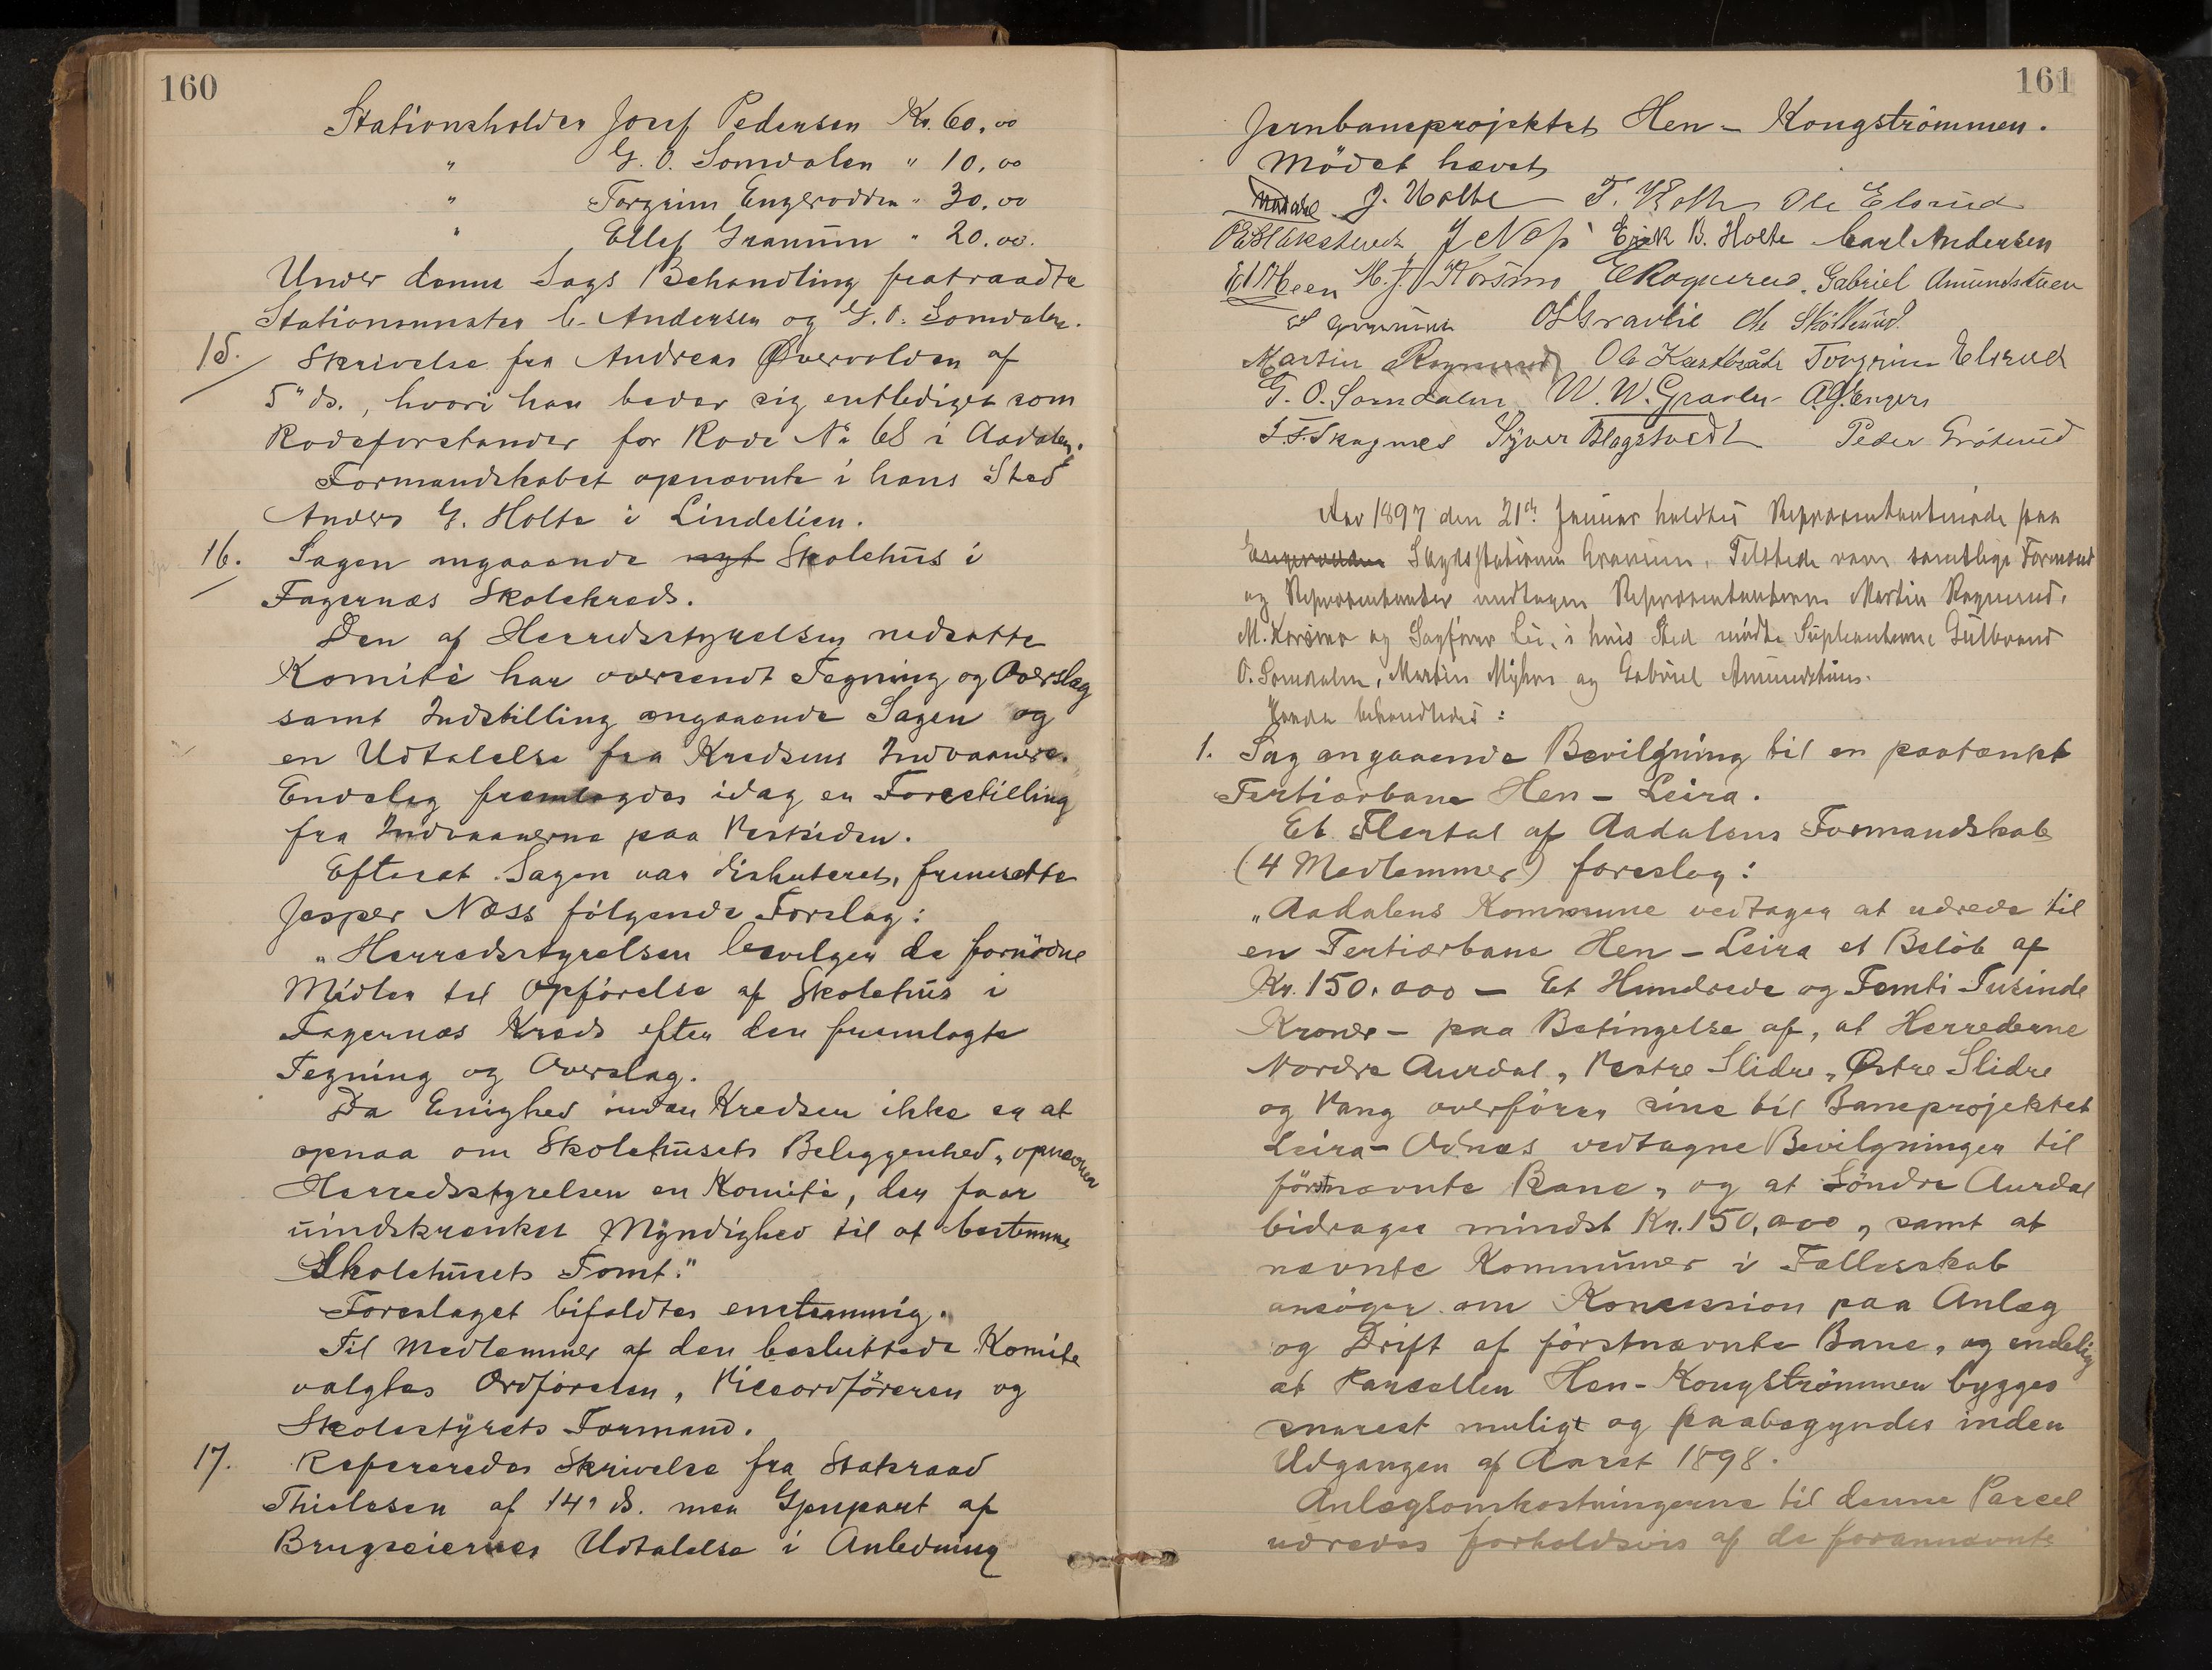 160
Stationsholder Josef Pedersen Kr. 60,00
" G. O. Somdalen " 10,00
" Torgrim Engerodden " 30,00
" Ellef Granum " 20.00.
Under denne Sags Behandling fratraadte
Stationsmester C. Andersen og G. O. Somdalen.
15. Skrivelse fra Andreas Øvervolden af
5" ds., hvori han beder sig entlediget som
Rodeforstander for Rode No 68 i Aadalen.
Formandskabet opnævnte i hans Sted
Anders G. Holte i Lindelien.
16. Sagen angaaende nyt Skolehus i
Fagernæs Skolekreds.
Den af Herredsstyrelsen nedsatte
Komité har oversendt Tegning og Overslag
samt Indstilling angaaende Sagen og
en Udtalelse fra Kredsens Indvaanere.
Endelig fremlagdes idag en Forestilling
fra Indvaanerne paa Vestsiden.
Efterat Sagen var diskuteret, fremsatte
Jesper Næss følgende Forslag:
"Herredsstyrelsen bevilger de fornødne
Midler til Opførelse af Skolehus i
Fagernæs Kreds efter den fremlagte
Tegning og Overslag.
Da Enighed inden Kredsen ikke er at
opnaa om Skolehusets Beliggenhed, opnævner
Herredsstyrelsen en Komité, der faar
uindskrænket Myndighed til at bestemme
Skolehusets Tomt."
Forslaget bifaldtes enstemmig.
Til Medlemmer af den besluttede Komite
valgtes Ordføreren, Viceordføreren og
Skolestyrets Formand.
17. Refereredes Skrivelse fra Statsraad
Thilesen af 14" ds. med Gjenpart af
Brugseiernes Udtalelse i Anledning
161
Jernbaneprojektet Hen - Kongstrømmen.
Mødet hævet
J. Holte T. Holte Ole Elsrud
J Næss Erik B. Holte Carl Andersen
M. J. Korsmo Gabriel Amundstuen
Ole
Martin Rognerud Ole Torgrim Elsrud
G. O. Somdalen W. W. A. G. Engers
Syver Blagstvedt Peder Grøterud
Aar 1897 den 21de Januar holdtes Repræsentantmøde paa
Engerodden Skydsstationen Granum. Tilstede vare samtlige Formænd
og Repræsentanter undtagen Repræsentanterne Martin Rognerud,
M. Korsmo og Sagfører Lie, i hvis Sted mødte Supleanterne Gulbrand
O. Somdalen, Martin Myhre og Gabriel Amundstuen.
Handa behandledes:
1. Sag angaaende Bevilgning til en paatænkt
Tertiærbane Hen - Leira.
Et Flertal af Aadalens Formandskab
(4 Medlemmer) foreslog:
"Aadalens Kommune vedtager at udrede til
en Tertiærbane Hen - Leira et Beløb af
Kr. 150,000 - Et Hundrede og Femti Tusinde
Kroner - paa Betingelse af, at Herrederne
Nordre Aurdal, Vestre Slidre, Østre Slidre
og Vang overfører sine til Baneprojektet
Leira - Odnæs vedtagne Bevilgninger til
førstnævnte Bane, og at Søndre Aurdal
bidrager mindst Kr. 150,000, samt at
nævnte Kommuner i Fællesskab
ansøger om Koncession paa Anlæg
og Drift af førstnævnte Bane, og endelig
at Parcellen Hen - Kongstrømmen bygges
snarest muligt og paabegyndes inden
Udgangen af Aaret 1898.
Anlægsomkostningerne til denne Parcel
udredes forholdsvis af de forannævnte